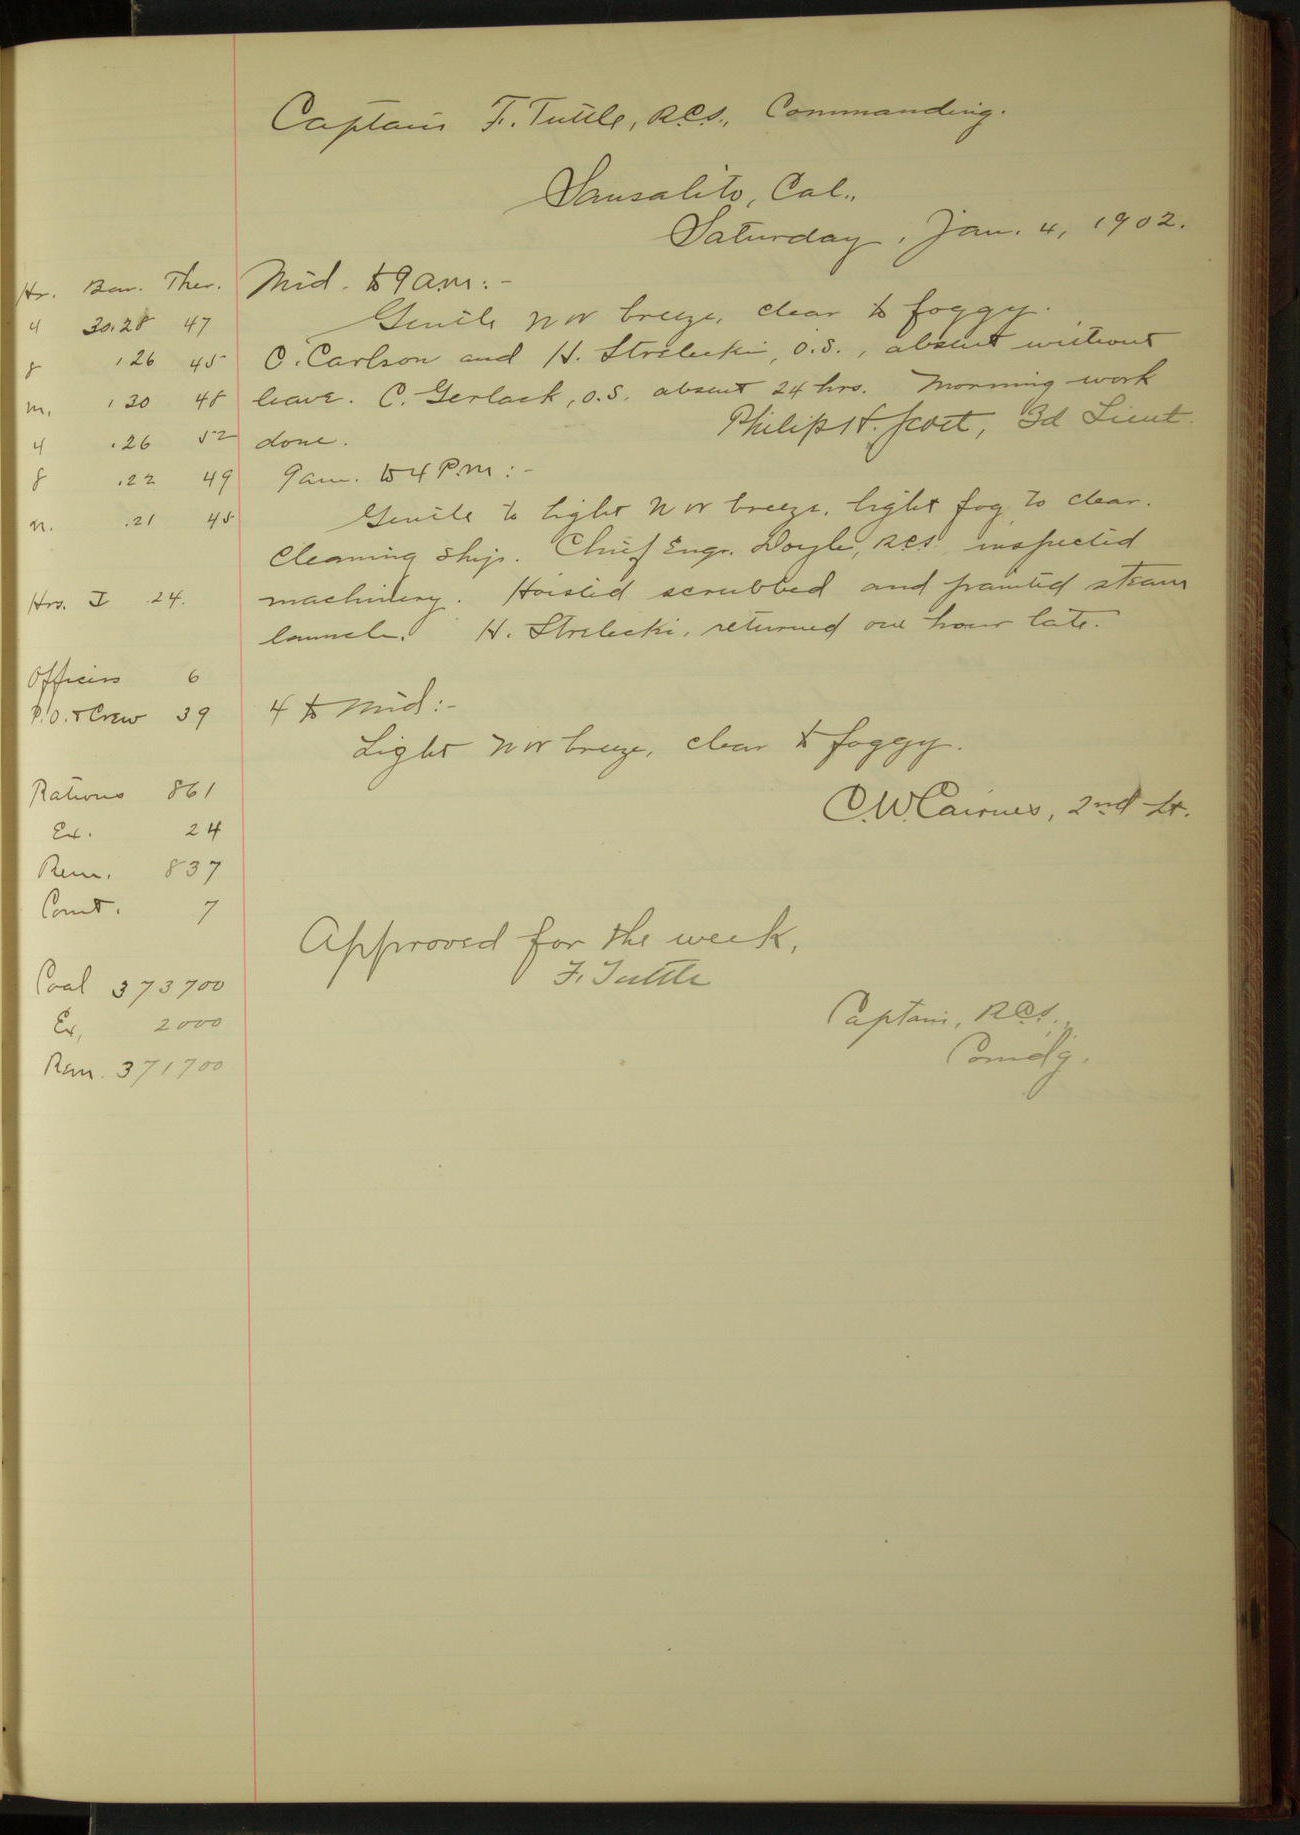 Captain F. Tuttle, R.C.S., Commanding.
Sausalito, Cal.,
Saturday, Jan. 4, 1902.
Hr. Bar. Ther.
4 30.28 47
8 .26 45
m. .30 48
4 .26 52
8 .22 49
n. .21 45
Hrs. I 24.
Officers 6
P.O. + Crew 39
Rations 861
Ex. 24
Rem. 837
Comt. 7
Coal 373700
Ex, 2000
Rem. 371700
Mid. to 9 a.m:-
Gentle NW breeze, clear to foggy.
C. Carlson and H. Strelecki, O.S., absent without
leave. C. Gerlack, O.S. absent 24 hrs. Morning work
done.
Philip H. Scott, 3d Lieut.
9 am. to 4 P.m:-
Gentle to light NW breeze, light fog to clear.
Cleaning ship. Chief Engr. Doyle, RCS inspected
machinery. Hoisted scrubbed and painted steam
launch. H. Strelecki, returned one hour late.
4 to mid:-
Light NW breeze, clear to foggy.
C.W. Cairnes, 2nd Lt.
Approved for the week,
F. Tuttle
Captain, RCS.,
Comdg.